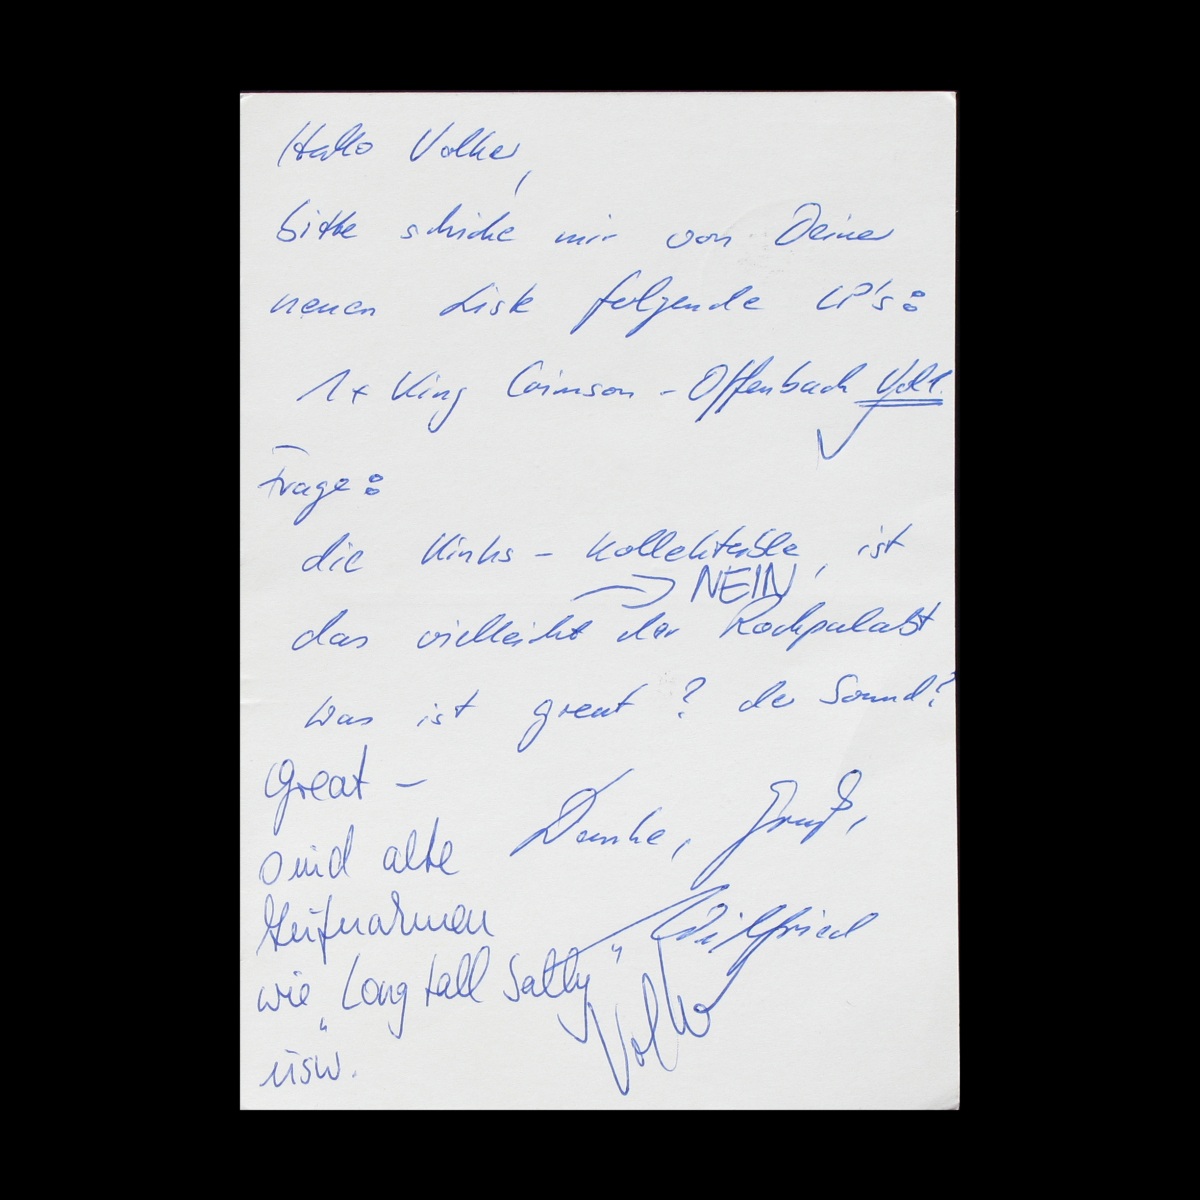 Hallo Volker,
bitte schicke mir von Deiner
neuen Liste folgende LP's:
1x King Crimson - Offenbach Vol 1.
Frage:
die Kinks - Kollekteble, ist
→ NEIN
das vielleicht der Rockpalast
was ist great? der Sound?
Great -
sind alte
Aufnahmen
wie "Long tall Sally"
usw.
Danke, Gruß,
Wilfried
Volker